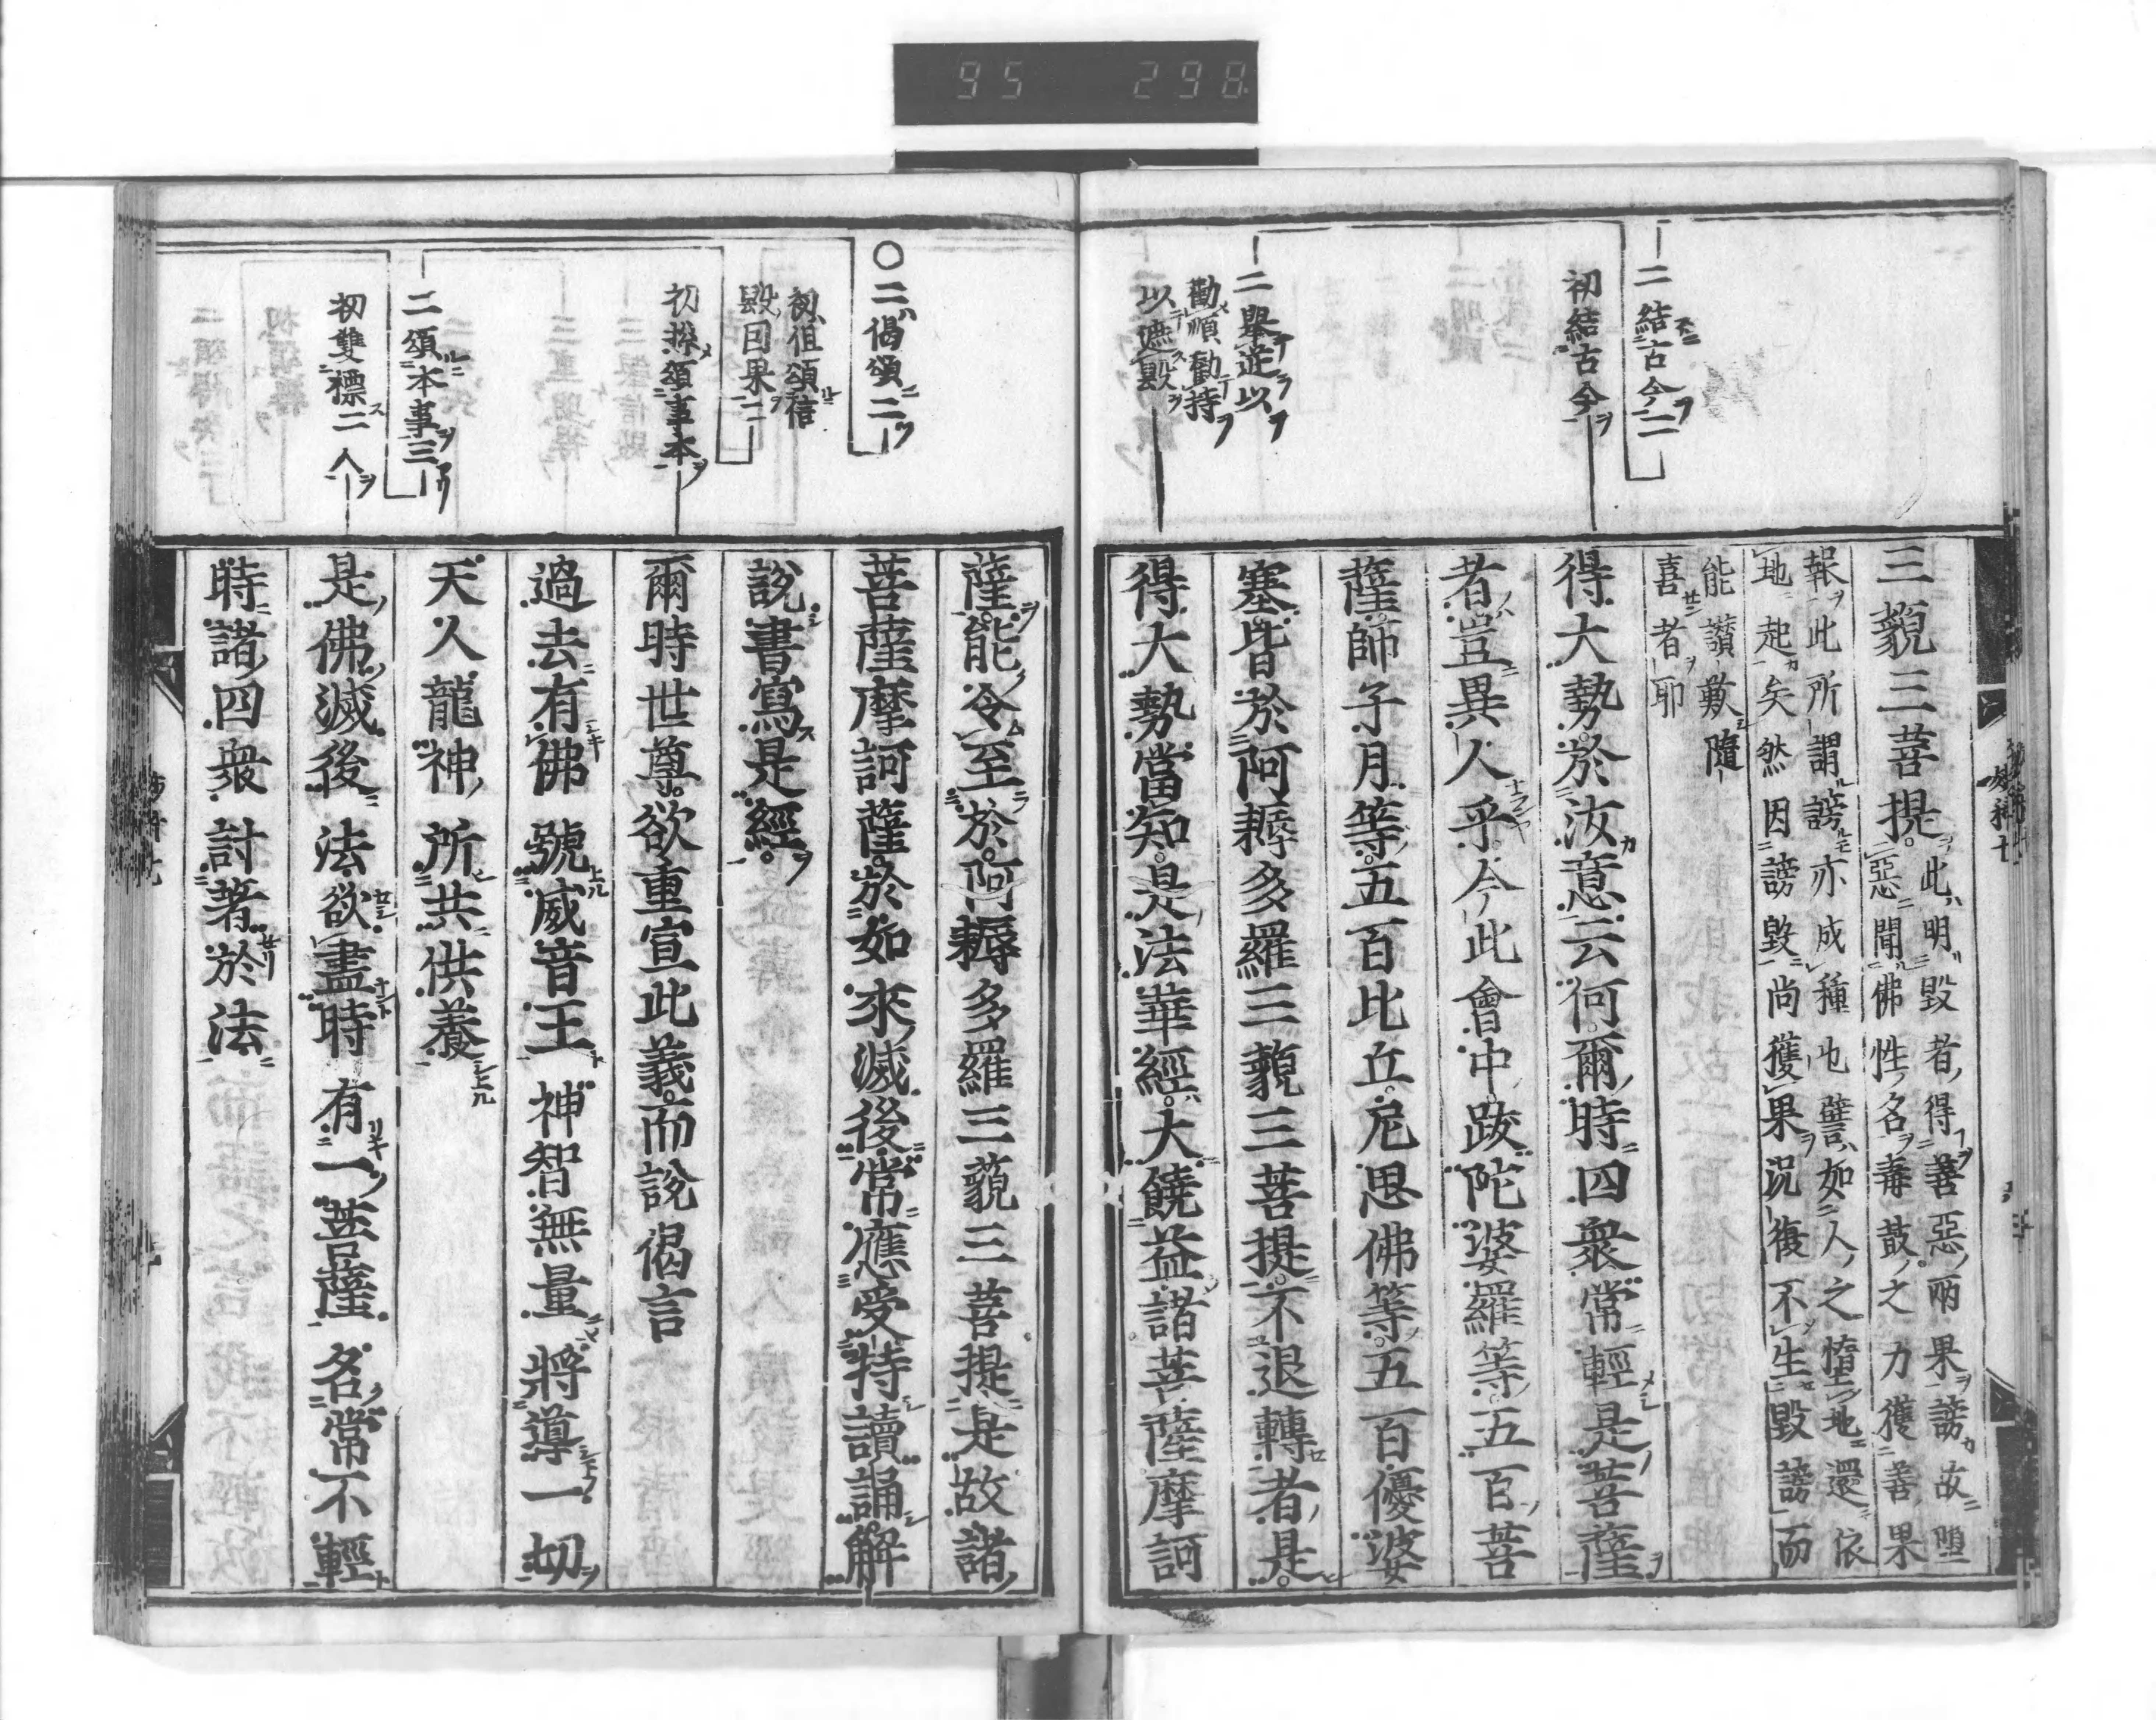 95 298
二結古今二
初結古今
二舉逆以
勸順勸持
以遮毀
三藐三菩提
此明毀者得善惡兩果謗故墮
惡聞佛性名毒鼓之力獲善果
報此所謂謗亦成種也譬如人之墮地還依
地起矣然因謗毀尚獲果況復不生毀謗而
能讚歎隨
喜者耶
得大勢於汝意云何爾時四衆常輕是菩薩
者豈異人乎今此會中跋陀婆羅等五百菩
薩師子月等五百比丘尼思佛等五百優婆
塞皆於阿耨多羅三藐三菩提不退轉者是
得大勢當知是法華經大饒益諸菩薩摩訶
○二偈頌二
初但頌信
毀因果二
初揔頌事本
二頌本事三
初雙標二人
薩能令至於阿耨多羅三藐三菩提是故諸
菩薩摩訶薩於如來滅後常應受持讀誦解
說書寫是經
爾時世尊欲重宣此義而說偈言
過去有佛 號威音王 神智無量 將導一切
天人龍神 所共供養
是佛滅後 法欲盡時 有一菩薩 名常不輕
時諸四衆 討著於法